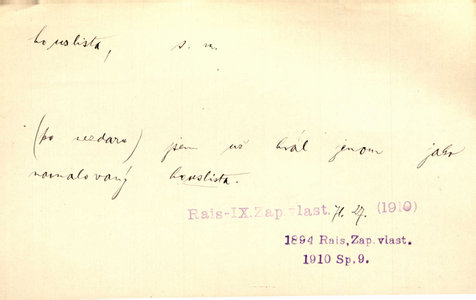 houslista, s. m.
(po nezdaru) jsem už hrál jenom jako
namalovaný houslista.
Rais-IX.Zap.vlast. 27. (1910)
1894 Rais, Zap. vlast.
1910 Sp. 9.